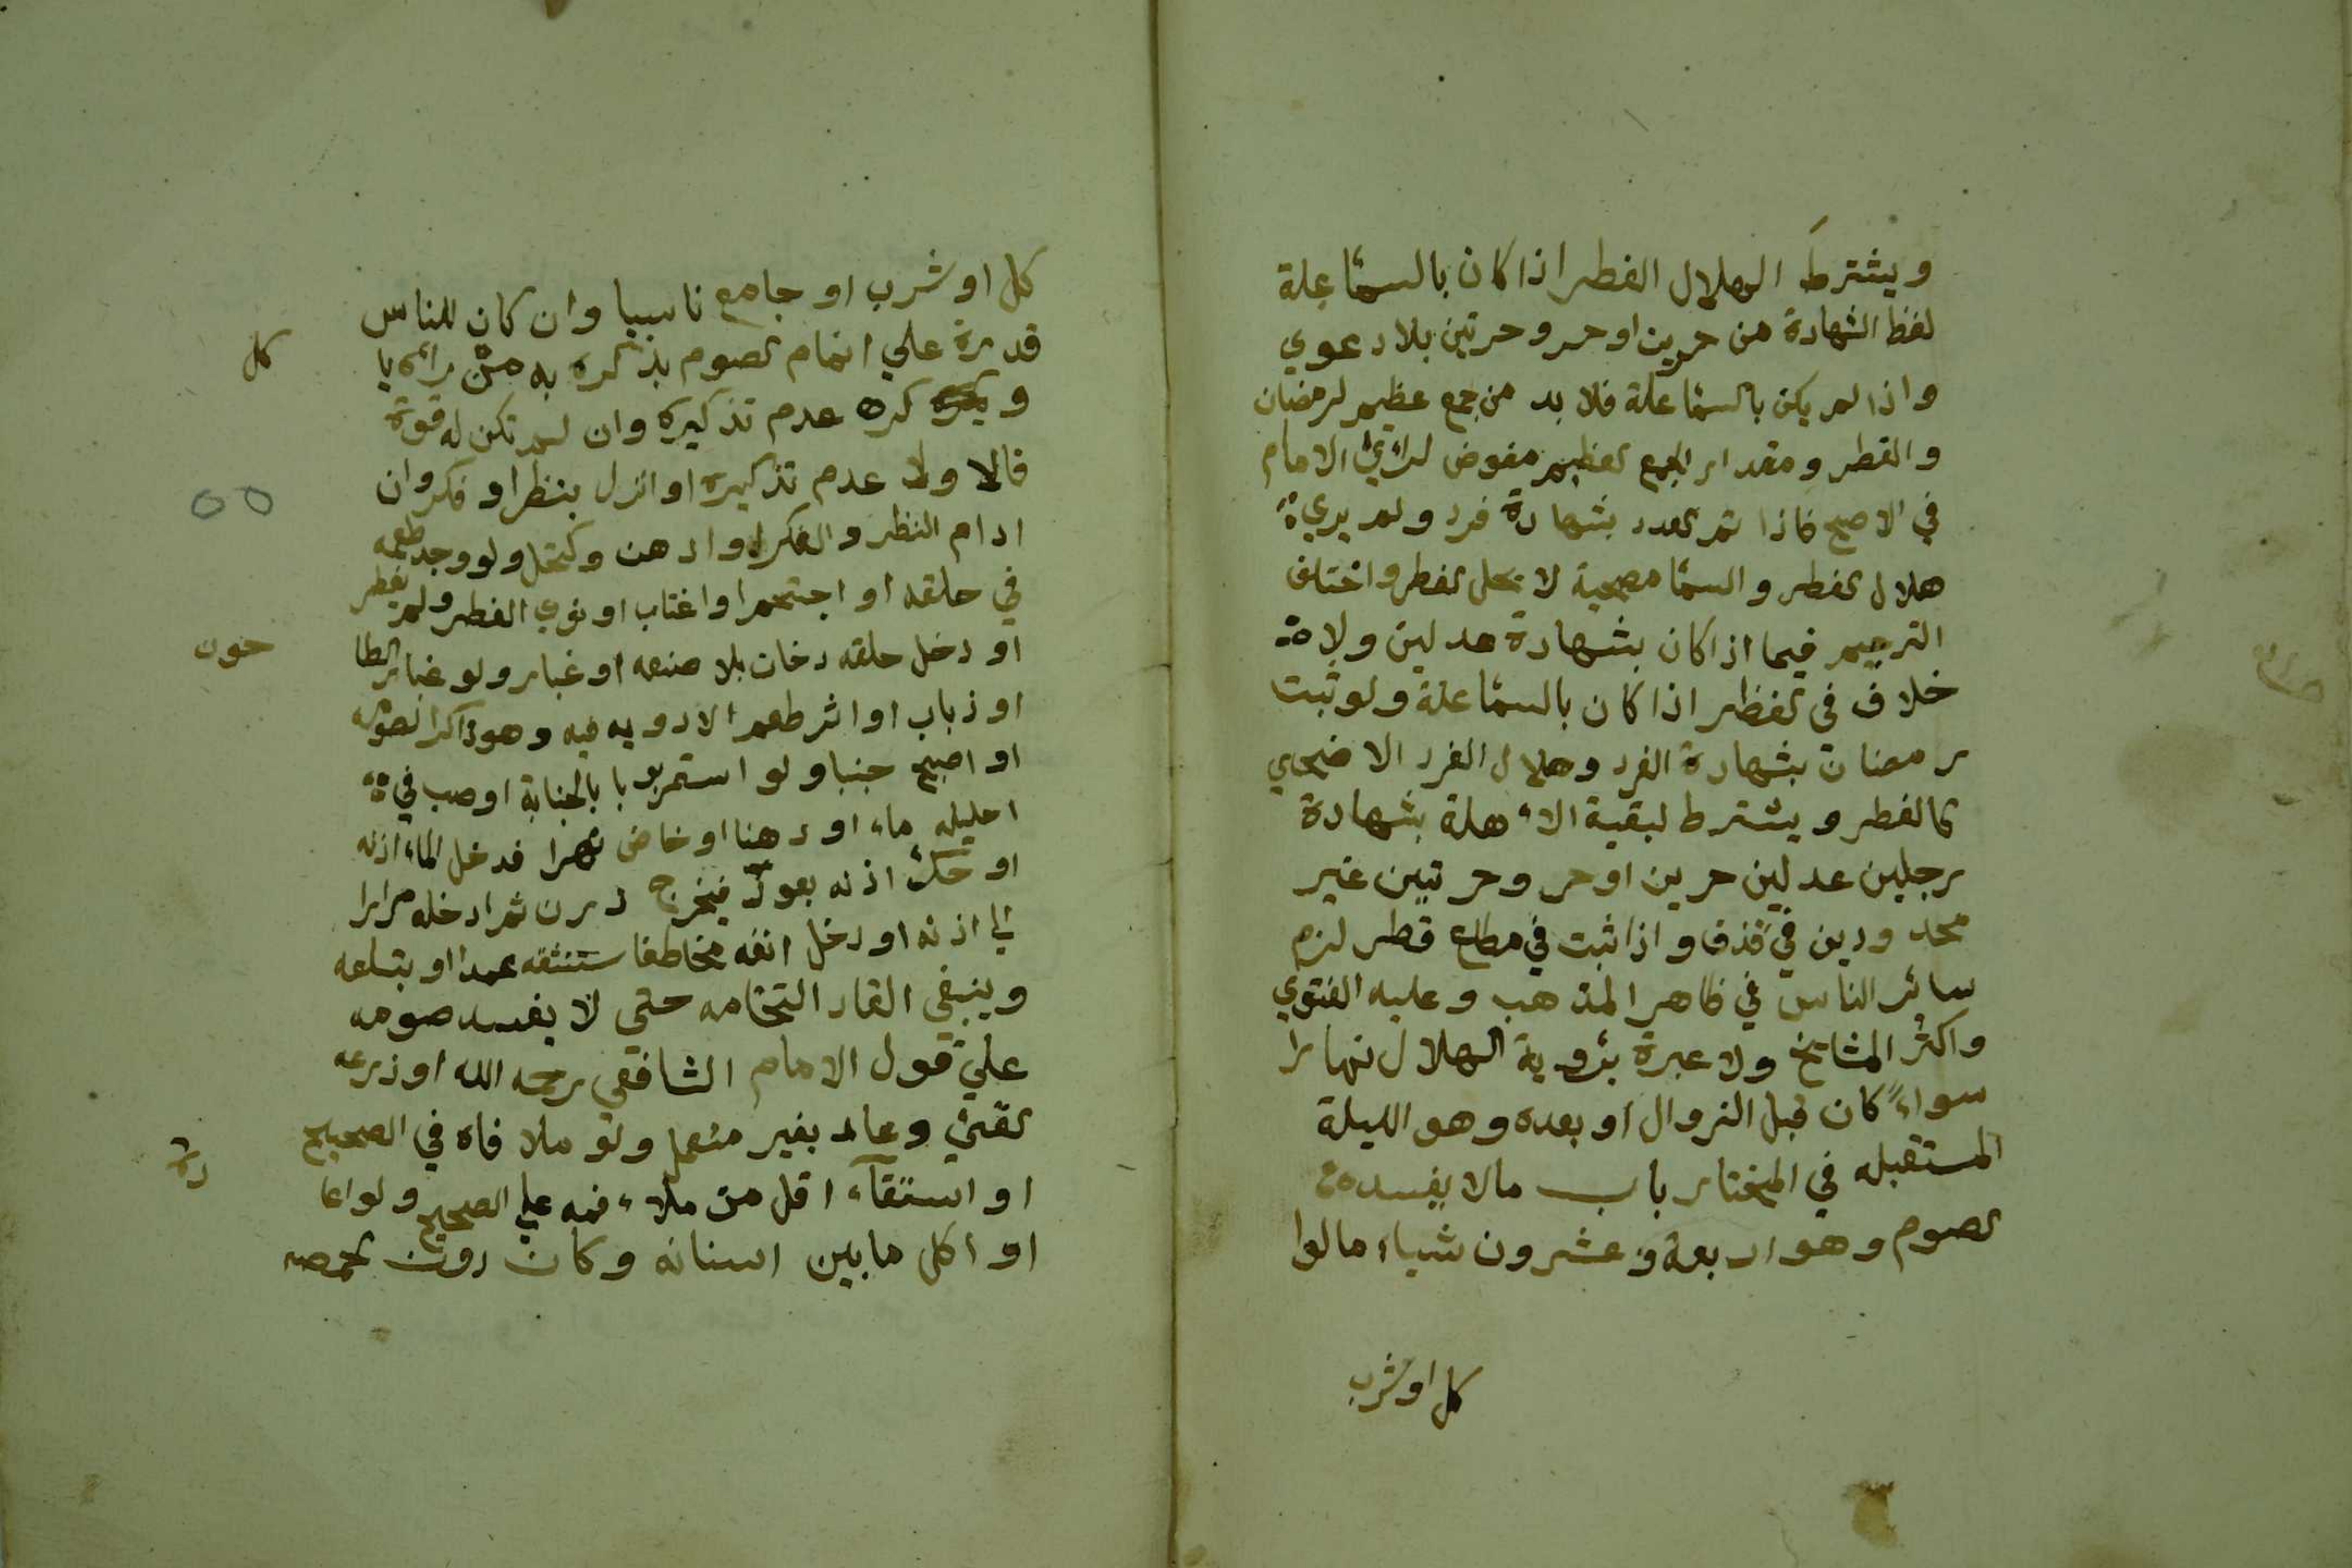 ويشترط الهلال الفطر اذا كان بالسمّا علة
لفظ الشهادة من حرين او حر وحرتين بلا دعوي
واذا لم يكن بالسمّا علة فلا بد من جمع عظيم لرمضان
والفطر ومقدار الجمع لعظيم مفوض لرأي الامام
في الاصح فاذا تم لعدد بشهادة فرد ولم يري
هلال لفطر والسمّا مصحية لا يحل لفطر واختلف
الترجيم فيما اذا كان بشهادة عدلين ولا
خلاف في لفطر اذا كان بالسمّا علة ولو ثبت
رمضان بشهادة الفرد وهلال الفرد الاضحي
كالفطر ويشترط لبقية الاهلة بشهادة
رجلين عدلين حرين او حر وحرتيين غير
محد ودين في قذف واذا ثبت في مطلع قطر لزم
سائر الناس في ظاهر المذهب وعليه الفتوي
واكثر المشايخ ولا عبرة برؤية الهلال نهارا
سواءً كان قبل الزوال او بعده وهو الليلة
المستقبله في المختار باب ما لا يفسد
لصوم وهو اربعة وعشرون شياء ما لوا
كل او شرب
كل او شرب او جامع ناسيا وان كان للناس
قدرة علي اتمام لصوم يذكره به من راه يا
كل
و كره عدم تذكيره وان لم تكن له قوة
فالاولا عدم تذكيره او انزل بنظر او فكر وان
ادام النظر والفكر او ادهن وكتحل ولو وجد طعمه
في حلقه او احتجم او اغتاب او نوي الفطر ولم يفطر
او دخل حلقه دخان بلا صنعه او غبار ولو غبار الطا
حون
او ذباب او اثر طعم الادويه فيه وهو ذاكر لصومه
او اصبح جنبا ولو استمر يوبا بالجنابة او صب في
احليله ماء او دهنا او خاض نهرا فدخل الماء اذنه
او حكّ اذنه بعود فيخرج درن ثم ادخله مرارا
الي اذنه او دخل انفه مخاط فاستنثقه عمدا او بتلعه
وينبغي القاء النخامه حتي لا يفسد صومه
علي قول الامام الشافعي رحمه الله او ذرعه
لقئ وعاد بغير منعمل ولو ملا فاه في الصحيح
او استقآء اقل من ملاء فمه علي الصحيح ولو اعا
ده
او اكل ما بين اسنانه وكان دون لحمصه